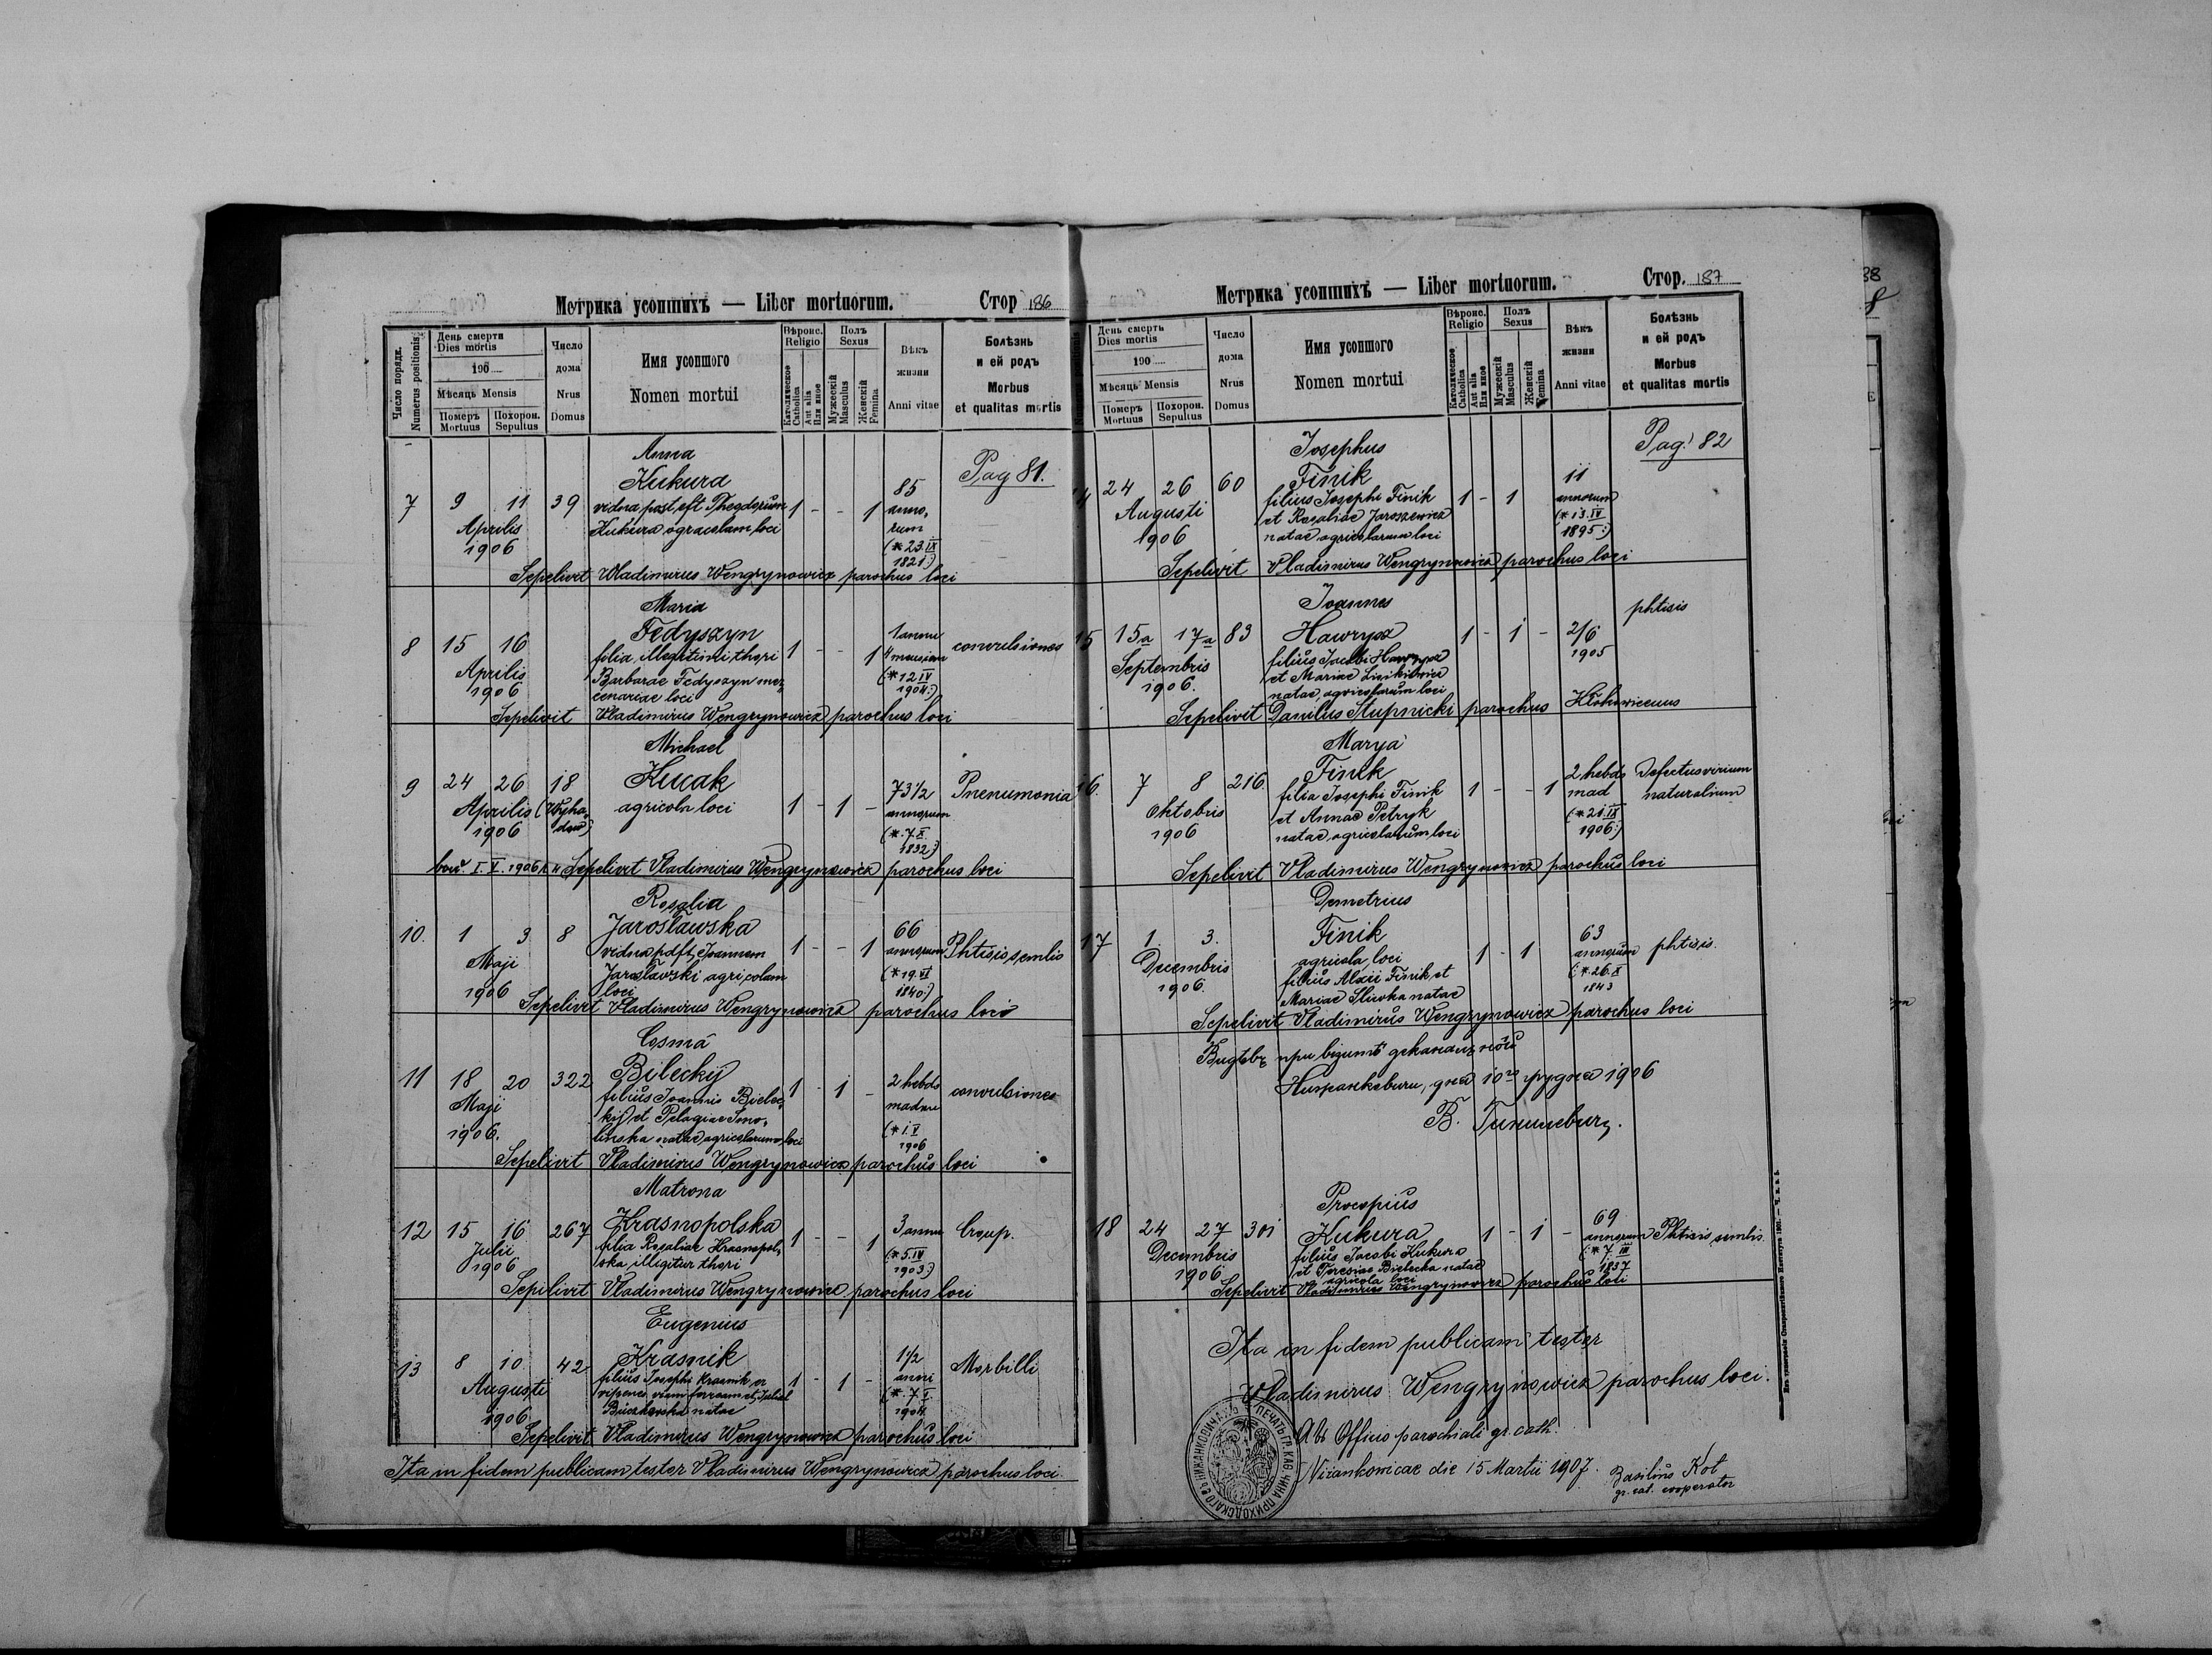 Метрика усопшихъ — Liber mortuorum. Стор 186
Число порядк. Numerus positionis
День смерти Dies mortis
190
Мѣсяць Mensis
Померъ Mortuus
Похорон. Sepultus
Число дома Nrus Domus
Имя усопшого Nomen mortui
Вѣроис. Religio
Католическое Catholica
Aut alia Или иное
Полъ Sexus
Мужескій Masculus
Женскій Femina
Вѣкъ жизни Anni vitae
Болѣзнь и ей родъ Morbus et qualitas mortis
Pag 81.
7 9 11 39 Anna
Kukura
vidua post eft Theodorum
Kukura agricolam loci
1 - - 1
85 annorum (* 23.IX 1821:)
Aprilis 1906
Sepelivit Wladimirus Wengrynowicz parochus loci
8 15 16 Maria
Fedyszyn
filia illegitimi thori
Barbarae Fedyszyn mer
cenariae loci
1 - - 1
1 annu 11 mensium (* 12 IV 1904:)
convulsiones
Aprilis 1906
Sepelivit Vladimirus Wengrynowicz parochus loci
9 24 26 18 Michael
Kucak
agricola loci
1 - 1 -
73 1/2 annorum (* 7.X 1832:)
Pnenumonia
Aprilis 1906
I.V.1906 Sepelivit Vladimirus Wengrynowicz parochus loci
10. 1 3 8 Rosalia
Jarosławska
vidua pdft Joannem
Jarosławski agricolam
loci
1 - - 1
66 annorum (* 19.VI 1840:)
Phtisis senilis
Maji 1906
Sepelivit Vladimirus Wengrynowicz parochus loci
11 18 20 322 Cosma
Bilecky
filius Joannis Bielec
kij et Pelagiae Smo,
linska natae agricolarum loci
1 - 1 -
2 hebdo madau (* 1.V 1906
convulsiones
Maji 1906.
Sepelivit Vladimirus Wengrynowicz parochus loci
12 15 16 267 Matrona
Krasnopolska
filia Rosaliae Krasnopol,
ska, illegitur thori
1 - - 1
3 annu (* 5.IV 1903:)
Croup.
Julii 1906
Sepilivit Vladimirus Wengrynowicz parochus loci
13 8 10 42 Eugenius
Krasnik
filius Josephi Krasnik
natae
1 - 1 -
1 1/2 anni (* 7.V 1904
Morbilli
Augusti 1906
Sepelivit Vladimirus Wengrynowicz parochus loci
Ita in fidem publicam testor Vladimirus Wengrynowicz parochus loci.
Метрика усопшихъ — Liber mortuorum. Стор. 187
День смерть Dies mortis
190
Мѣсяць Mensis
Померъ Mortuus
Похорон. Sepultus
Число дома Nrus Domus
Имя усопшого Nomen mortui
Вѣроис. Religio
Католическое Catholica
Aut alia Или иное
Полъ Sexus
Мужескій Masculus
Женскій Femina
Вѣкъ жизни Anni vitae
Болѣзнь и ей родъ Morbus et qualitas mortis
Pag. 82
24 26 60 Josephus
Finik
filius Josephi Finik
et Rosaliae Jaroszewicz
natae agricolarum loci
1 - 1
11 annorum (* 13.IV 1895:)
Augusti 1906
Sepelivit Vladimirus Wengrynowicz parochus loci
15 15a 17a 83 Joannes
Hawrysz
filius Jacobi Hawrysz
et Mariae
natae agricolarum loci
1 - 1 -
2/6 1905
phtisis
Septembris 1906.
Sepelivit Danilus Stupnicki parochus
16. 7 8 216 Marya
Finik
filia Josephi Finik
et Annae Petryk
natae agricolarum loci
1 - - 1
2 hebdo mad (* 21.IX 1906:)
Defectus virium naturalium
Oktobris 1906
Sepelivit Vladimirus Wengrynowicz parochus loci
17 1. 3. Demetrius
Finik
agricola loci
filius Alexii Finik et
Mariae Sliwka natae
1 - 1
63 annorum (: * 26.X 1843
phtisis.
Decembris 1906.
Sepelivit Vladimirus Wengrynowicz parochus loci
Нижанковичи, дня 10го грудня 1906
18 24 27 301 Procopius
Kukura
filius Jacobi Kukura
et Teresiae Bielecka natae
agricola loci
1 - 1 -
69 annorum (: * 7 III 1837
Phtisis senilis.
Decembris 1906
Sepelivit Vladimirus Wengrynowicz parochus loci
Ita in fidem publicam testor
Vladimirus Wengrynowicz parochus loci.
Ab Officio parochiali gr. cath.
Nizankowicae die 15 Martii 1907.
Basilius Kot
gr. cat. cooperator